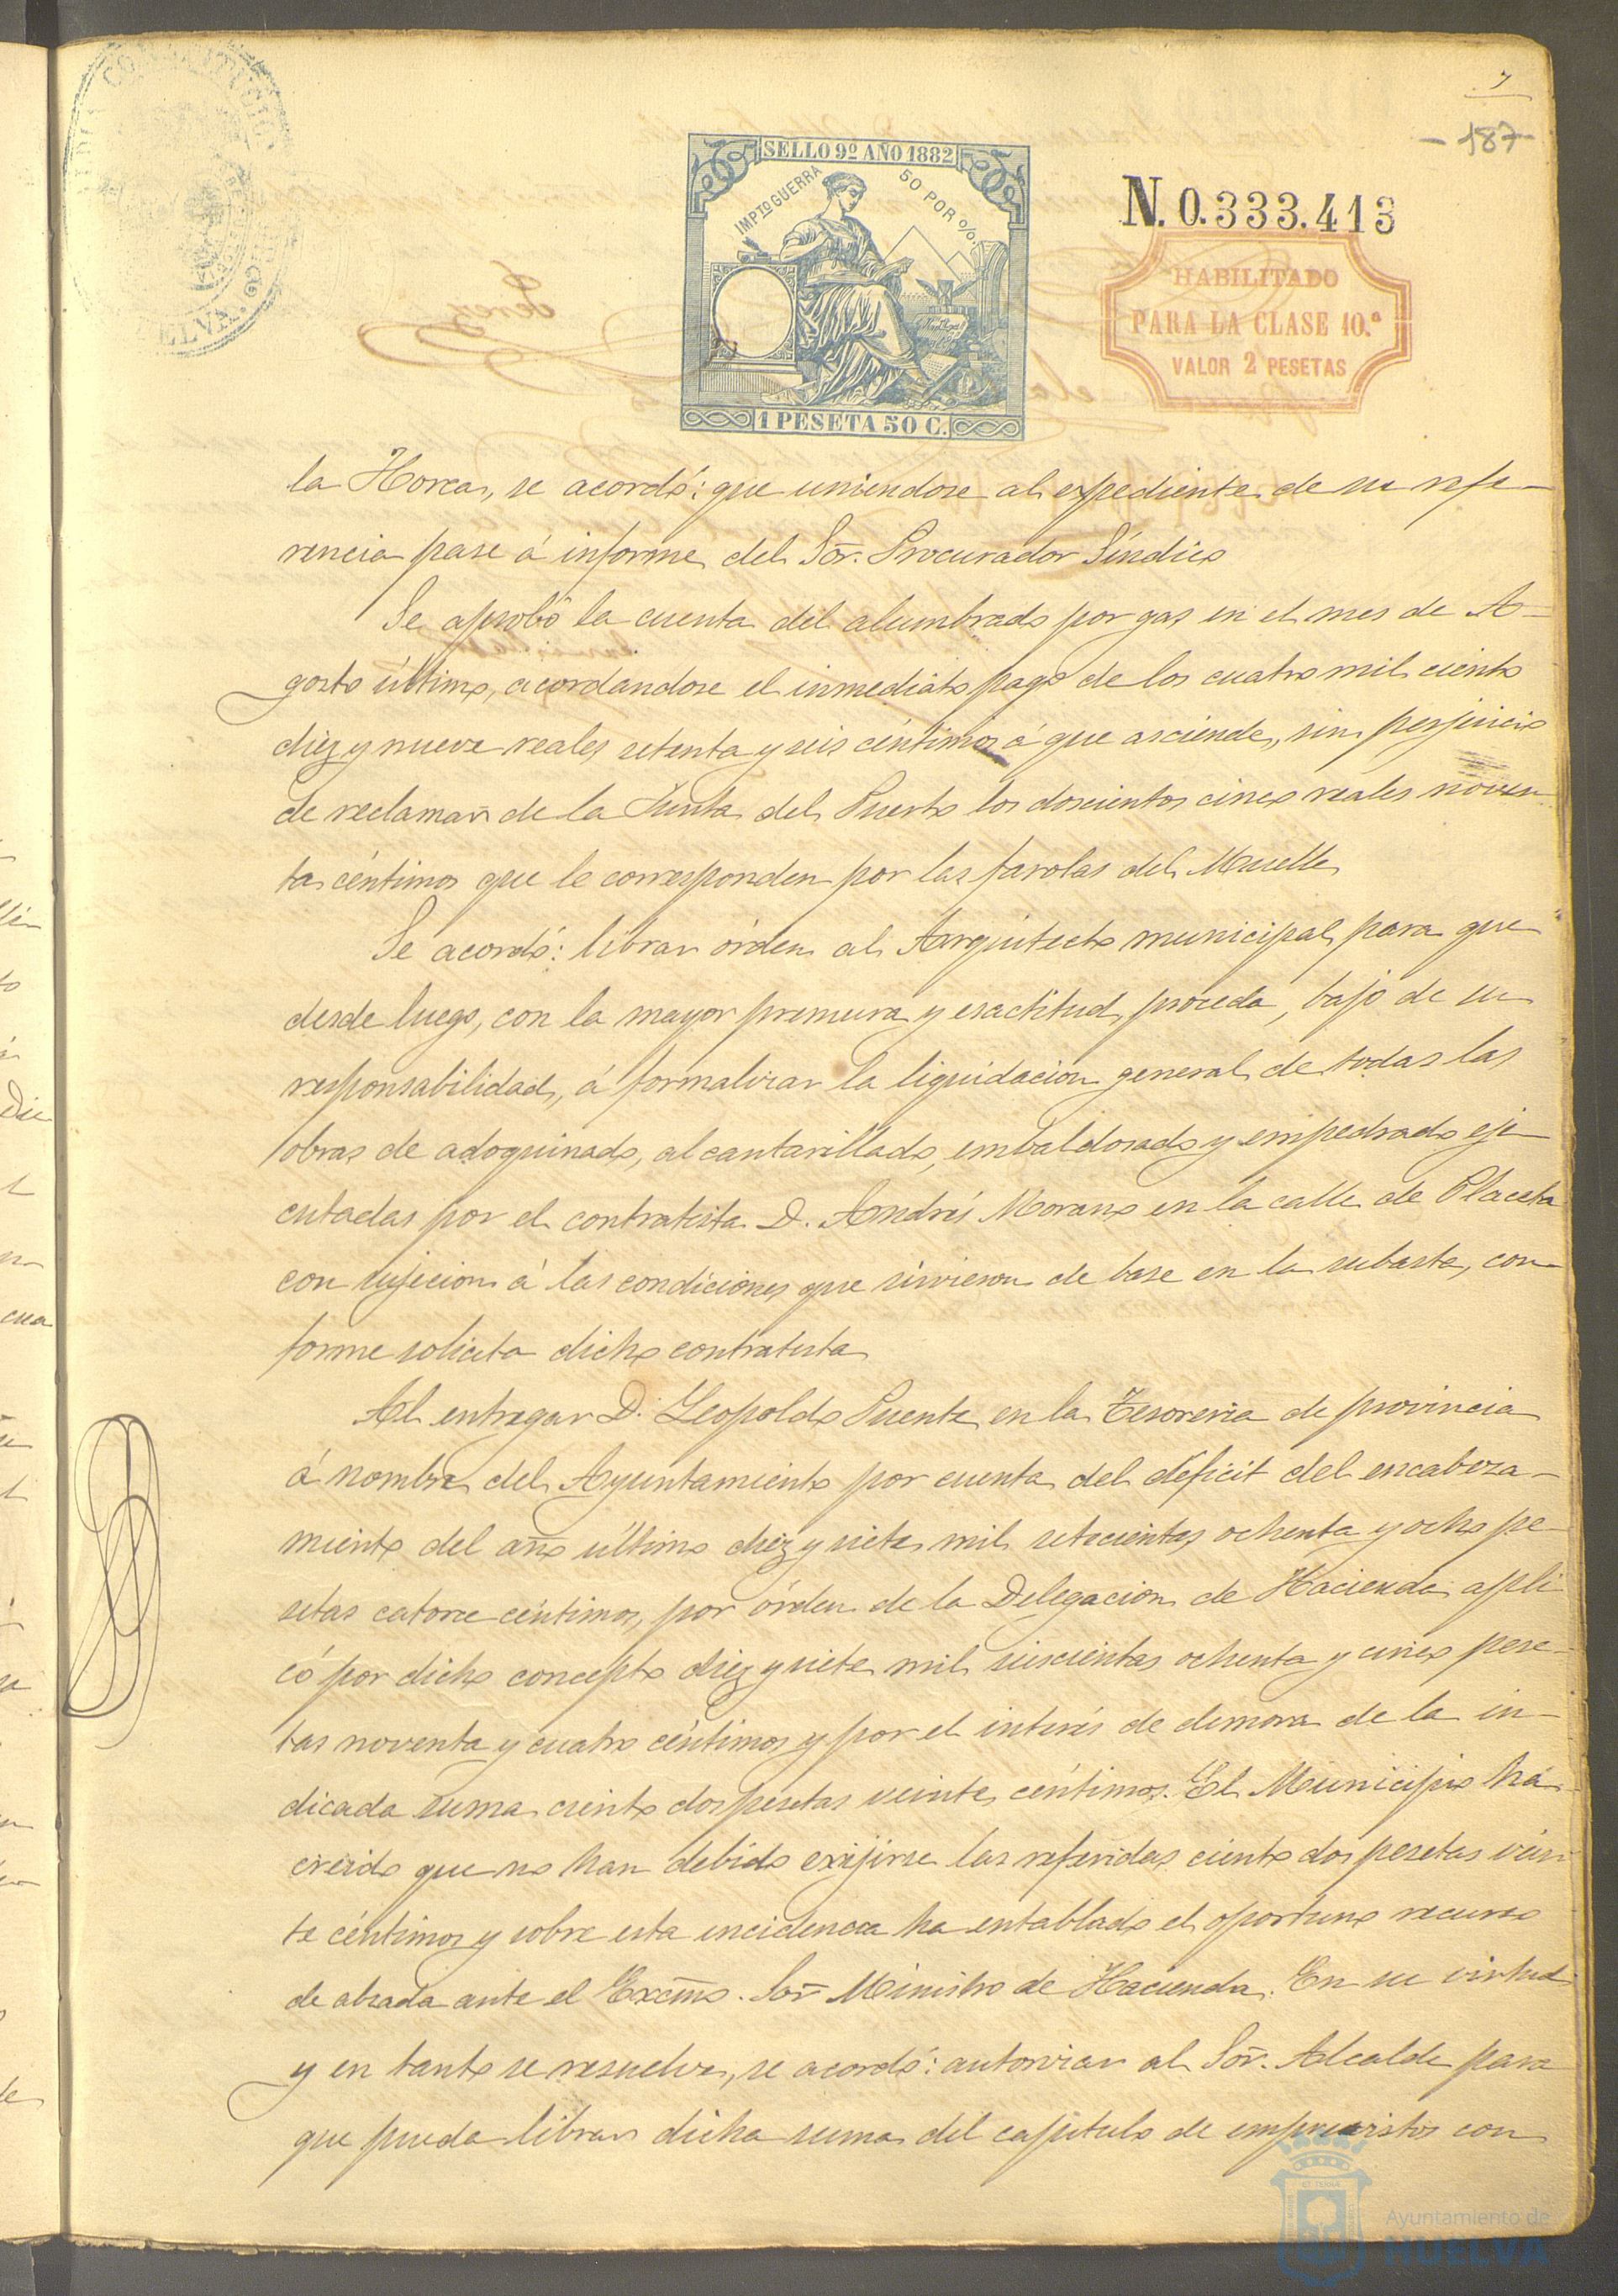 7
- 187 -
SELLO 9º AÑO 1882
IMPTO GUERRA 50 POR %.
1 PESETA 50 C.
N. 0.333.413
HABILITADO
PARA LA CLASE 10.ª
VALOR 2 PESETAS
la Horca, se acordó: que uniendose al expediente de su refe-
rencia pase á informe del Sor. Procurador Síndico
Se aprobó la cuenta del alumbrado por gas en el mes de A-
gosto último, acordandose el inmediato pago de los cuatro mil ciento
diez y nueve reales setenta y seis céntimos á que asciende, sin perjuicio
de reclamar de la Junta del Puerto los doscientos cinco reales noven
ta céntimos que le corresponden por las farolas del Muelle
Se acordó: librar órden al Arquitecto municipal para que
desde luego, con la mayor premura y esactitud, proceda, bajo de su
responsabilidad, á formalizar la liquidacion general de todas las
obras de adoquinado, alcantarillado, embaldosado y empedrado eje-
cutadas por el contratista D. Andrés Morano en la calle de Placeta
con sujecion á las condiciones que sirvieron de base en la subasta, con-
forme solicita dicho contratista
Al entregar D. Leopoldo Puente en la Tesoreria de provincia
á nombre del Ayuntamiento por cuenta del déficit del encabeza-
miento del año último diez y siete mil setecientas ochenta y ocho pe-
setas catorce céntimos, por órden de la Delegacion de Hacienda apli
có por dicho concepto diez y siete mil seiscientas ochenta y cinco pese-
tas noventa y cuatro céntimos y por el interés de demora de la in-
dicada suma ciento dos pesetas veinte céntimos. El Municipio há
creido que no han debido exijirse las referidas ciento dos pesetas vein-
te céntimos y sobre esta incidencia ha entablado el oportuno recurso
de alzada ante el Excmo. Sor Ministro de Hacienda. En su virtud
y en tanto se resuelve, se acordó: autorizar al Sor. Alcalde para
que pueda librar dicha suma del capitulo de imprevistos con
Ayuntamiento de
HUELVA